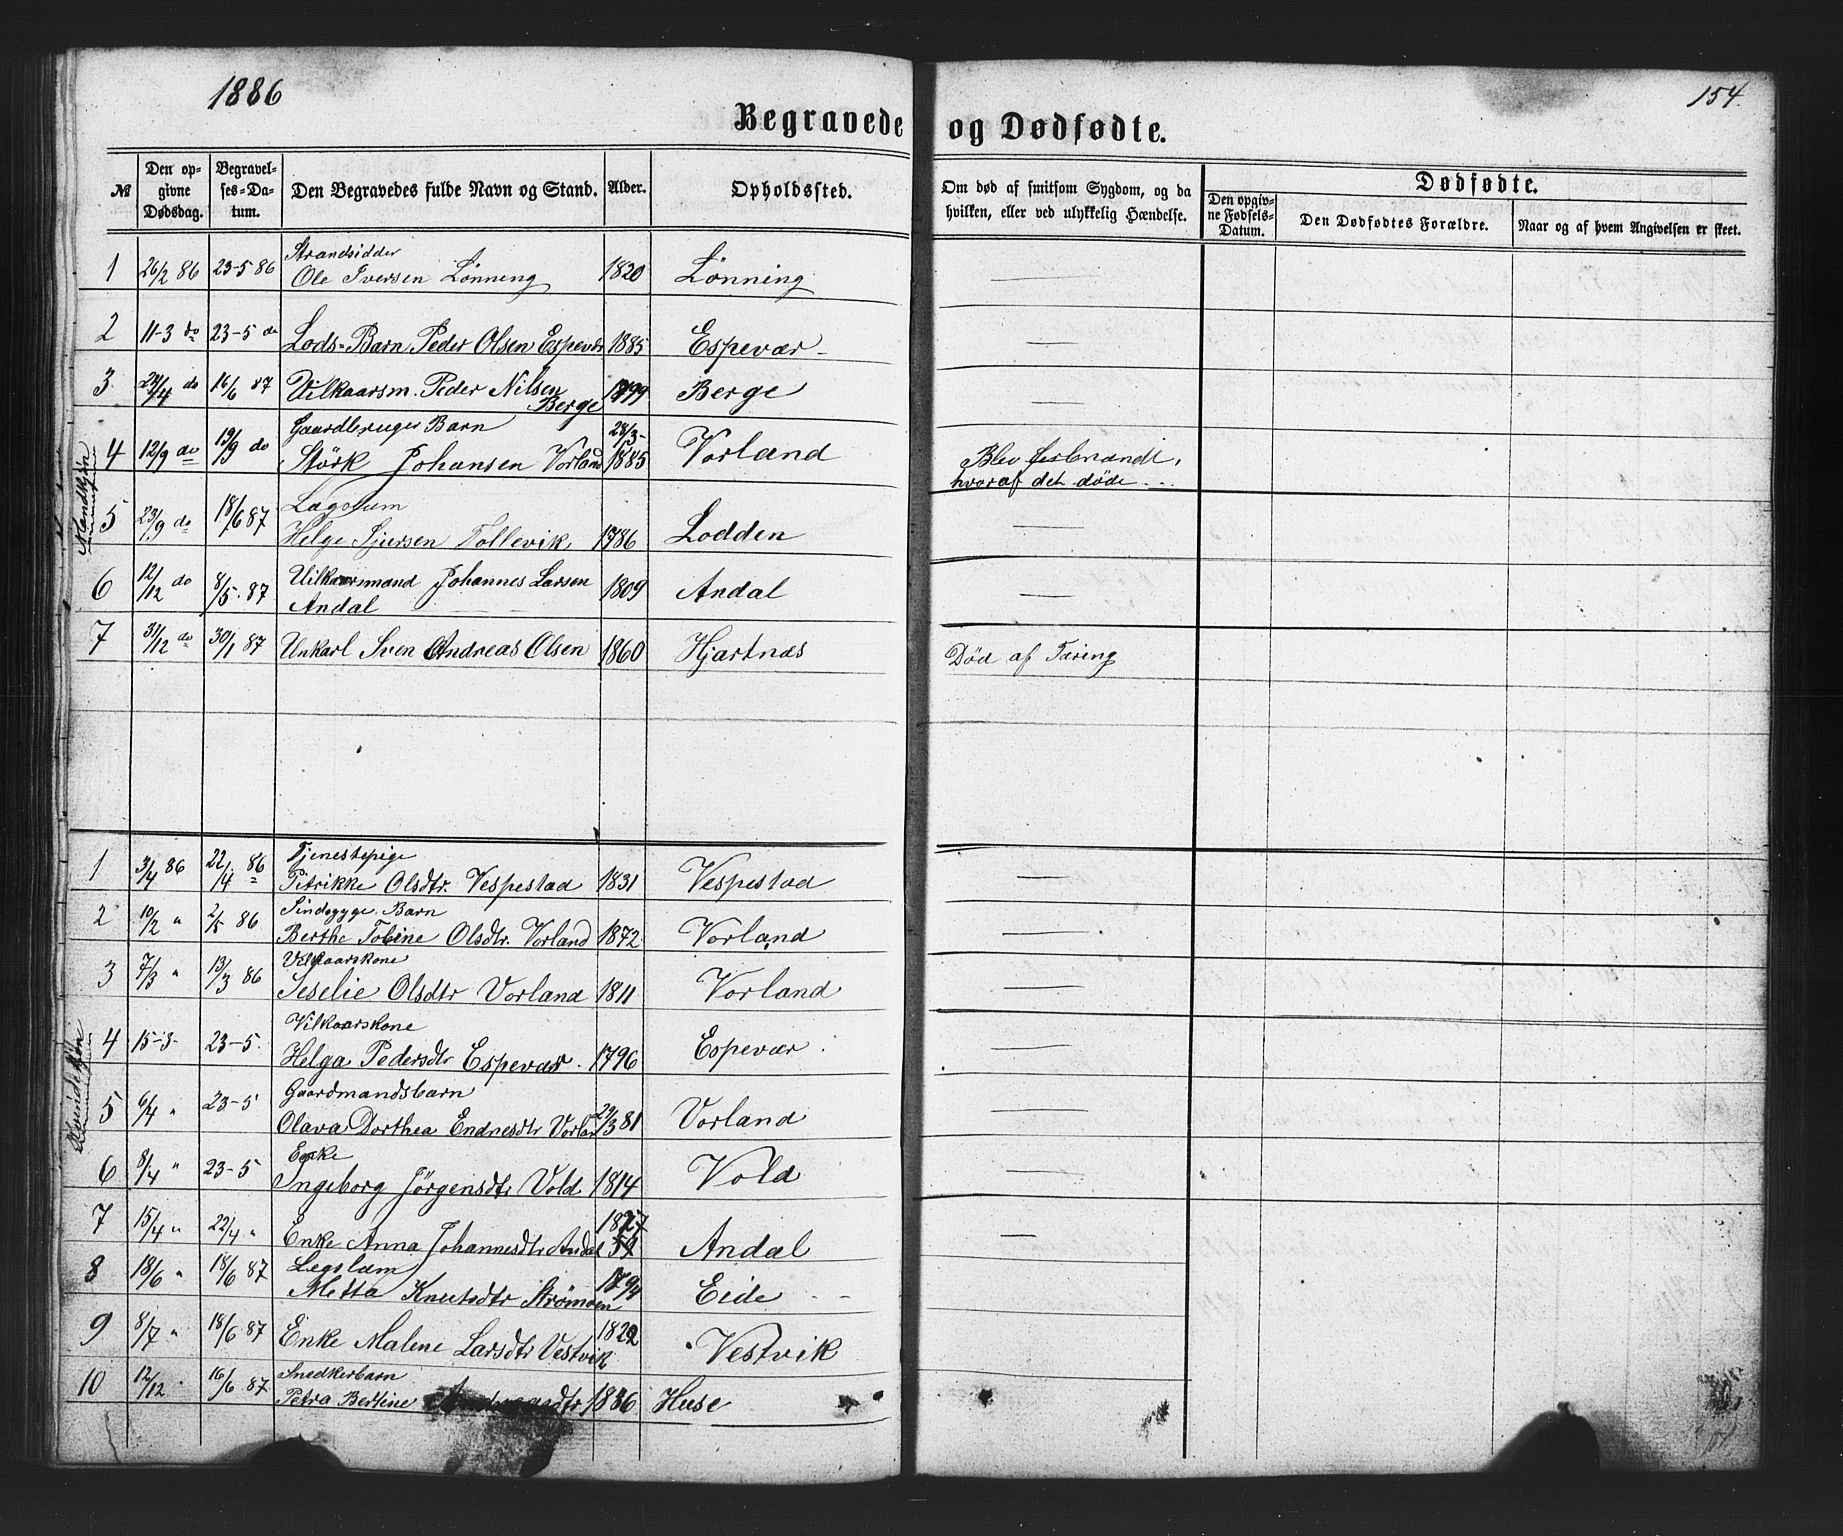 1886
154.
Begravede og Dødfødte.
№ Den opgivne Dødsdag. Begravelses-Datum. Den Begravedes fulde Navn og Stand. Alder. Opholdssted. Om død af smitsom Sygdom, og da hvilken, eller ved ulykkelig Hændelse. Dødfødte. Den opgivne Fødsels-Datum. Den Dødfødtes Forældre. Naar og af hvem Angivelsen er skeet.
Mandkjøn
Strandsidder
1 26/2 86 23-5 86 Ole Iversen Lønning 1820 Lønning
2 11-3 do 23-5 do Lods-Barn Peder Olsen Espevær 1885 Espevær
3 do 16/6 87 Vilkaarsm. Peder Nilsen 1799 Berge
Berge
Gaardbruger Barn 28/3-
4 12/9 do 19/9 do Størk Johansen Vorland 1885 Vorland Blev forbrændt,
hvoraf det døde
Lægslum
5 23/9 do 18/6 87 Helge Sjursen Tollevik 1786 Lodden
6 12/12 do 8/5. 87 Vilkaarmand Johannes Larsen 1809 Andal
Andal
7 31/12 do 30/1 87 Unkarl Sven Andreas Olsen 1860 Hjartnæs Død af Tæring
Kvindekjøn
Tjenestepige
1 3/4 86 22/4 86 Petrikke Olsdtr. Vespestad 1831 Vespestad
Sindsyge. Barn
2 10/2 " 2/5 86 Berthe Tobine Olsdtr. Vorland 1872 Vorland
Vilkaarskone
3 7/3 " 13/3 86 Seselie Olsdtr Vorland 1811 Vorland
Vilkaarskone
4 15-3- 23-5. Helga Pedersdtr Espevær. 1796 Espevær
Gaardmandsbarn
5 6/4 " 23-5 Olava Dorthea Endresdtr Vorland 29/3 81 Vorland
Enke
6 8/4 " 23-5 Ingeborg Jørgensdtr Vold 1814 Vold
7 15/4 " 22/4 " Enke Anna Johannesdtr Andal Andal
Legslem
8 18/6 " 18/6 87 Metta Knutsdtr Strømøen 1794 Eide
9 8/7 " 18/6 87 Enke Malene Larsdtr Vestvik 1822 Vestvik
Snedkerbarn
10 12/12 16/6 87 Petra Bertine 1886 Huse